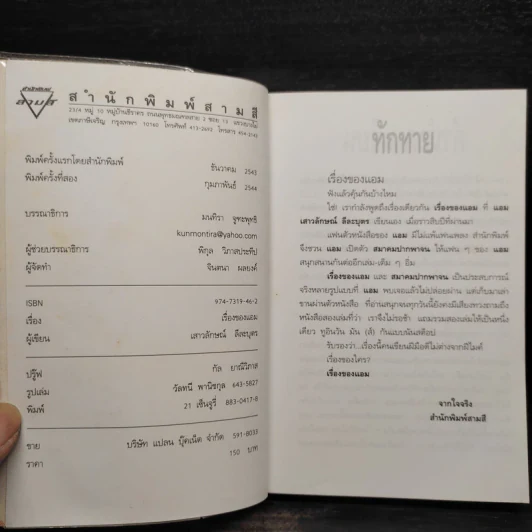 สำนักพิมพ์
สามสี
สำนักพิมพ์สามสี
23/4 หมู่ 10 หมู่บ้านชีวาดร ถนนพุทธมณฑลสาย 2 ซอย 13 แขวงบางไผ่
เขตภาษีเจริญ กรุงเทพฯ 10160 โทรศัพท์ 413-2692 โทรสาร 454-3143
พิมพ์ครั้งแรกโดยสำนักพิมพ์ ธันวาคม 2543
พิมพ์ครั้งที่สอง กุมภาพันธ์ 2544
บรรณาธิการ มนทิรา จูฑะพุทธิ
kunmontira@yahoo.com
ผู้ช่วยบรรณาธิการ พิกุล วิภาสประทีป
ผู้จัดทำ จินตนา ผลยงค์
ISBN 974-7319-46-2
เรื่อง เรื่องของแอม
ผู้เขียน เสาวลักษณ์ ลีละบุตร
ปรู๊ฟ กัล ยาณีวิภาส
รูปเล่ม วัลทนี พานิชกุล 643-5827
พิมพ์ 21 เซ็นจูรี่ 883-0417-8
ขาย บริษัท แปลน บุ๊คเน็ต จำกัด 591-8033
ราคา 150 บาท
ทักทาย
เรื่องของแอม
ฟังแล้วคุ้นกันบ้างไหม
ใช่! เรากำลังพูดถึงเรื่องเดียวกัน เรื่องของแอม ที่ แอม
เสาวลักษณ์ ลีละบุตร เขียนเอง เมื่อราวสิบปีที่ผ่านมา
แฟนตัวหนังสือของ แอม มีไม่แพ้แฟนเพลง สำนักพิมพ์
จึงชวน แอม เปิดตัว สมาคมปากพาจน ให้แฟน ๆ ของ แอม
สนุกสนานกันต่ออีกเล่ม-เต็ม ๆ อิ่ม
เรื่องของแอม และ สมาคมปากพาจน เป็นประสบการณ์
จริงหลายรูปแบบที่ แอม พบเจอแล้วไม่ปล่อยผ่าน แต่เก็บมาเล่า
ขานผ่านตัวหนังสือ ที่อ่านสนุกจนทุกวันนี้ยังคงมีเสียงทวงถามถึง
หนังสือสองเล่มที่ว่า เราจึงไม่รอช้า แถมรวมสองเล่มให้เป็นหนึ่ง
เดียว ทูอินวัน มัน (ส์) กันแบบนันสต๊อป
รับรองว่า...เรื่องนี้คนเขียนมีมือดีไม่ต่างจากฝีไมค์
เรื่องของใคร?
เรื่องของแอม
จากใจจริง
สำนักพิมพ์สามสี